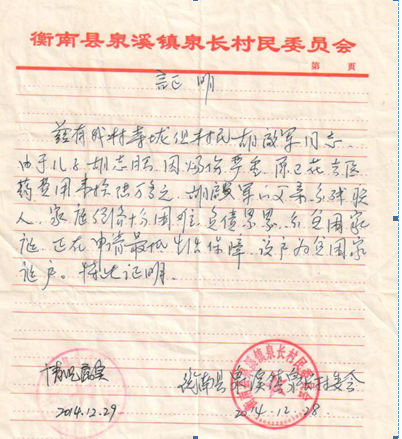 衡南县泉溪镇泉长村民委员会
第 页
証 明
兹有我村 村民胡啟军同志。
由于儿子胡志 因烧伤严重 已花去医
药费用 陆万多元 胡啟军 父亲 残疾
人 家庭经济十分困难 负债累累 系贫困家
庭 正在申请最低生活保障 该户为贫困家
庭户。特此证明。
情况属实 衡南县泉溪镇泉长村委会
2014.12.29 2014.12.28
衡南县泉溪镇泉长村民委员会